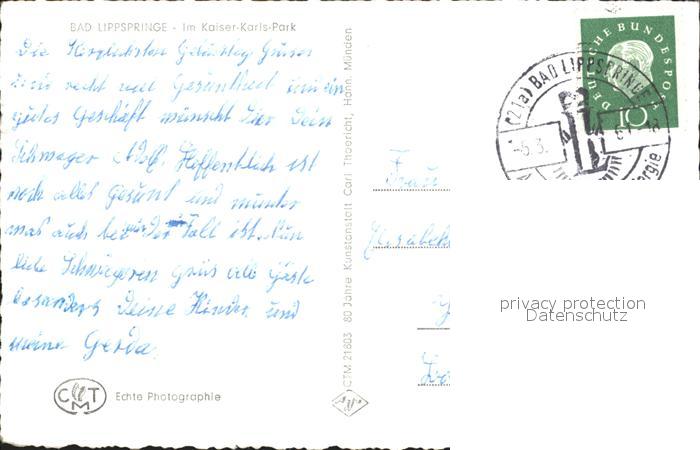 BAD LIPPSPRINGE - Im Kaiser-Karls-Park
Die Herzlichsten Geburtstag Grüsse
und recht viel Gesundheit und ein
gutes Geschäft wünscht Dir Dein
Schwager Adolf. Hoffentlich ist
noch alles Gesund und munter
was auch bei der Fall ist. Nun
liebe Schwägerin grüs alle Gäste
besonders Deine Kinder und
meine Gerda.
CMT Echte Photographie
CTM 21803 80 Jahre Kunstanstalt Carl Thoericht, Hann. Münden
Frau
Elisabeth
DEUTSCHE BUNDESPOST
10
(21a) BAD LIPPSPRINGE
-5.3.
61
privacy protection
Datenschutz